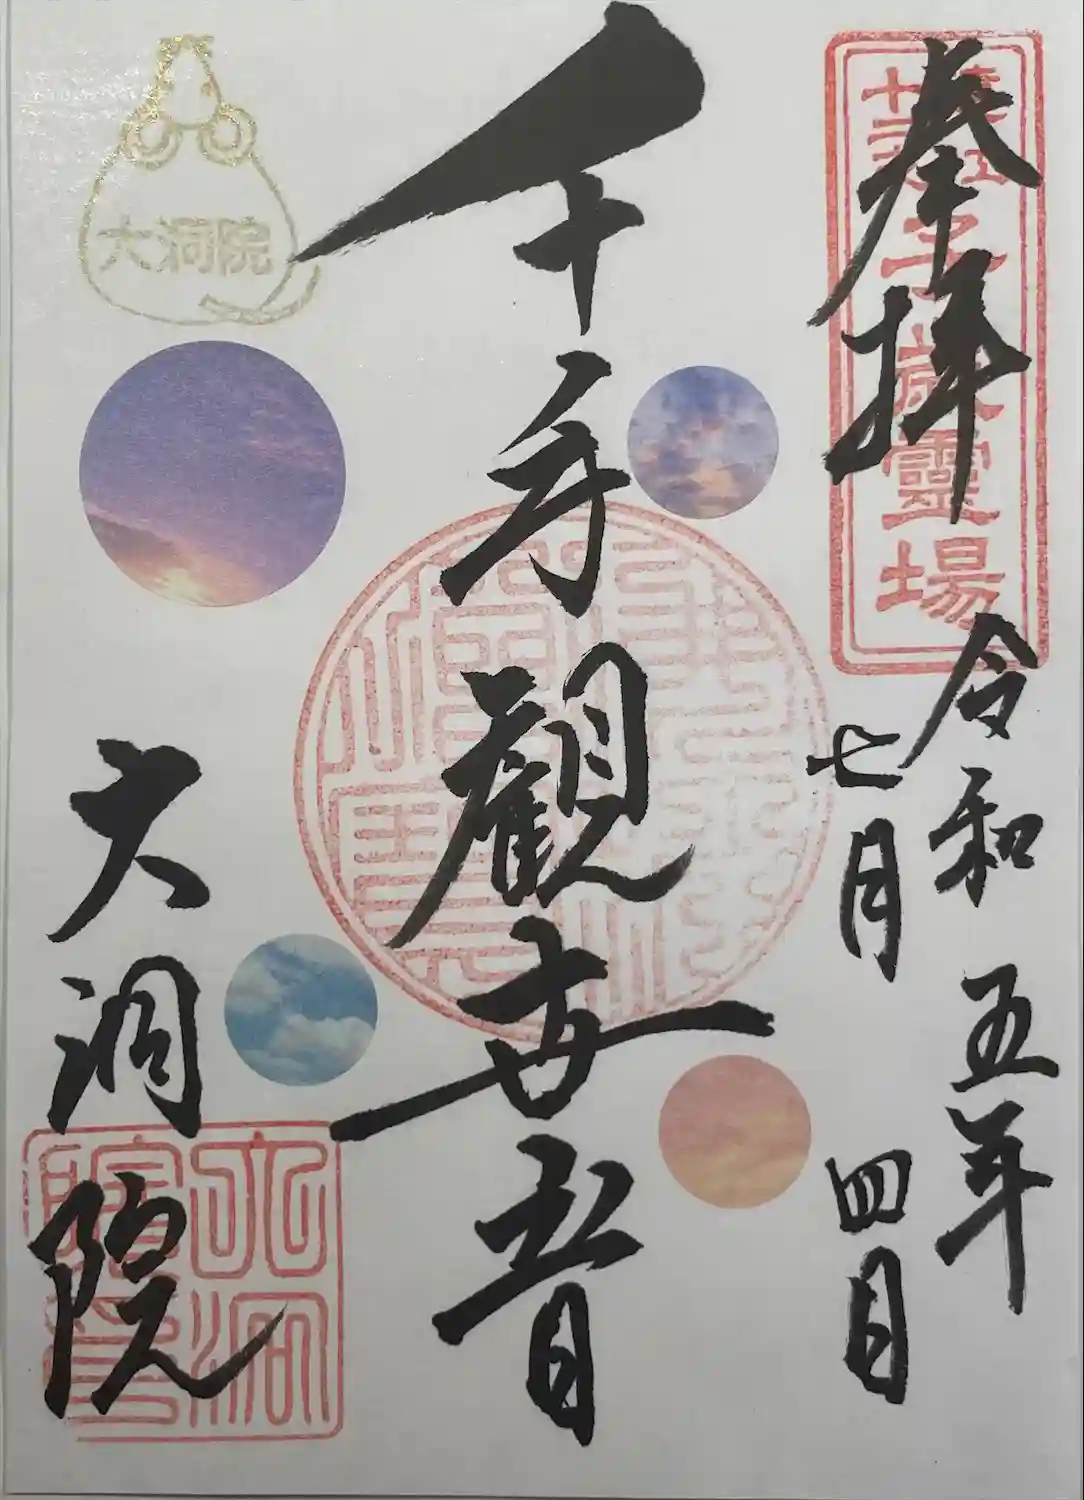 奉拝
令和五年
七月四日
千手観世音
大洞院
大洞院
子歳霊場